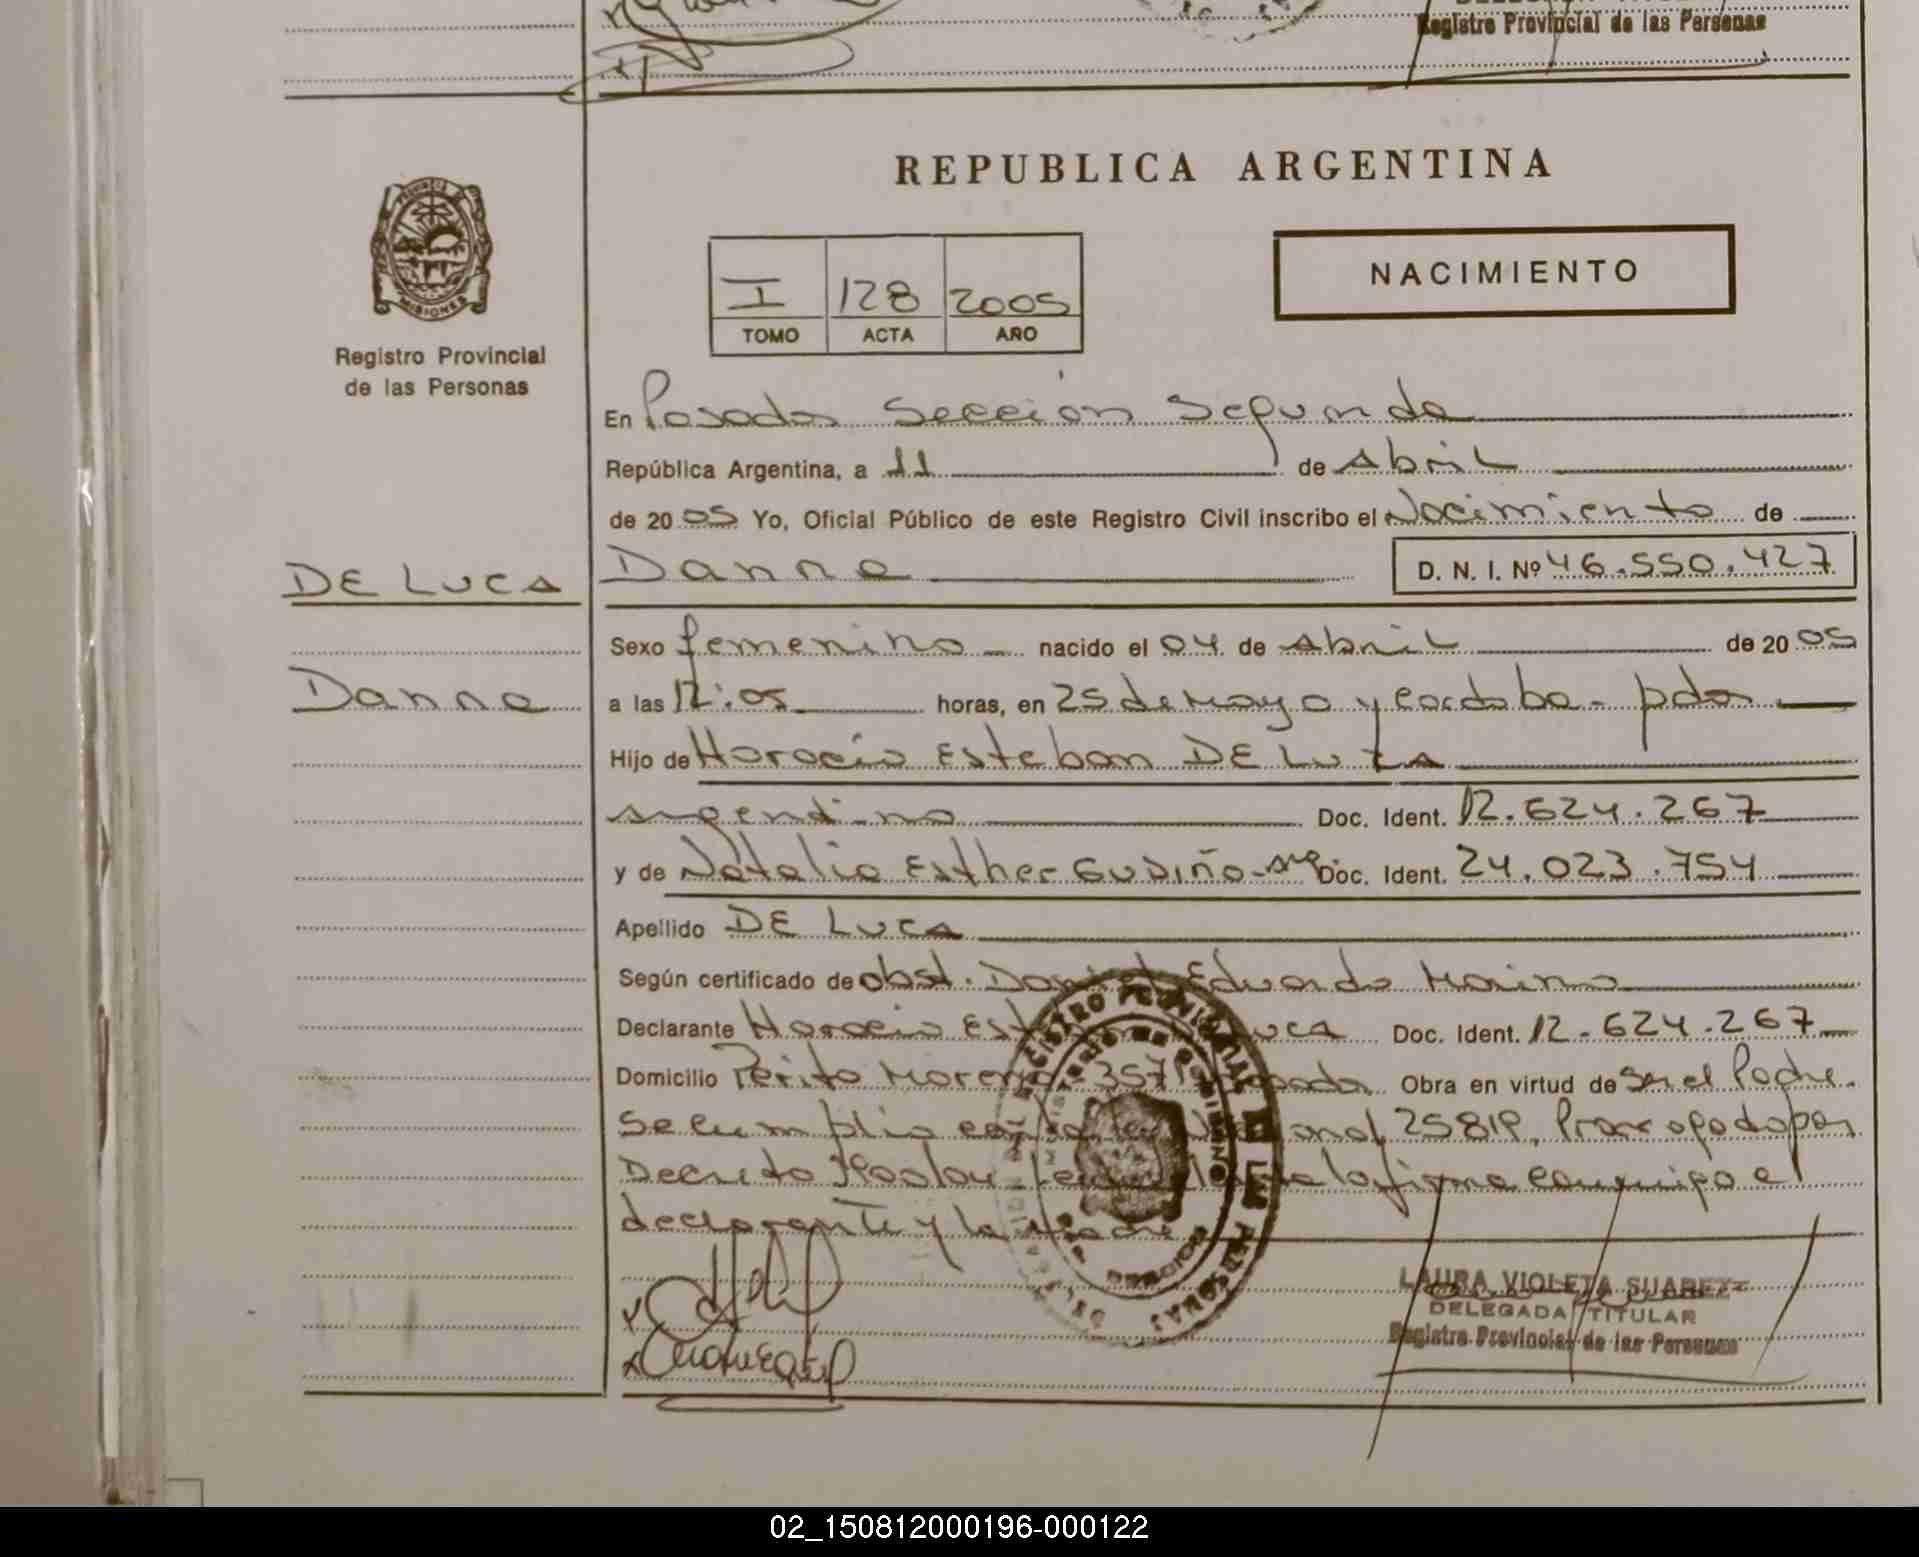 Registro Provincial de las Personas
REPUBLICA ARGENTINA
PROVINCIA DE
MISIONES
Registro Provincial
de las Personas
I 128 2005
TOMO ACTA AÑO
NACIMIENTO
En Posadas Sección Segunda
República Argentina, a 11 de Abril
de 2005 Yo, Oficial Público de este Registro Civil inscribo el Nacimiento de
DE LUCA
Danna
Danna D. N. I. Nº 46.550.427
Sexo femenino nacido el 04 de Abril de 2005
a las 12:05 horas, en 25 de Mayo y Cordoba - pdas
Hijo de Horacio Esteban DE LUCA
argentino Doc. Ident. 12.624.267
y de Natalia Esther GUDIÑO - arg Doc. Ident. 24.023.754
Apellido DE LUCA
Según certificado de obst. Daniel Eduardo Maino
Declarante Horacio Esteban de Luca Doc. Ident. 12.624.267
Domicilio Perito Moreno 3571 posadas Obra en virtud de Ser el Padre.
Se cumplio con la Ley Nacional 25819, Prorrogada por
Decreto leida el acta la firma conmigo el
declarante y la madre
REGISTRO PROVINCIAL DE LAS PERSONAS
MINISTERIO DE GOBIERNO
MISIONES
LAURA VIOLETA SUAREZ
DELEGADA TITULAR
Registro Provincial de las Personas
02_150812000196-000122